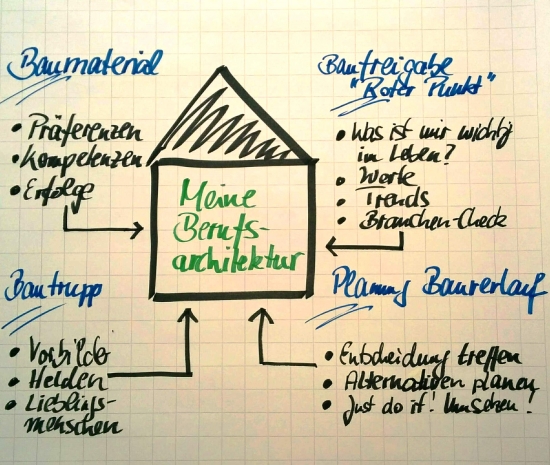 Baumaterial
• Präferenzen
• Kompetenzen
• Erfolge
Baufreigabe
"Roter Punkt"
• Was ist mir wichtig
im Leben?
• Werte
• Trends
• Branchen-Check
Meine
Berufs-
architektur
Bautrupp
• Vorbilder
• Helden
• Lieblings-
menschen
Planung Bauverlauf
• Entscheidung treffen
• Alternativen planen
• Just do it! Umsetzen!